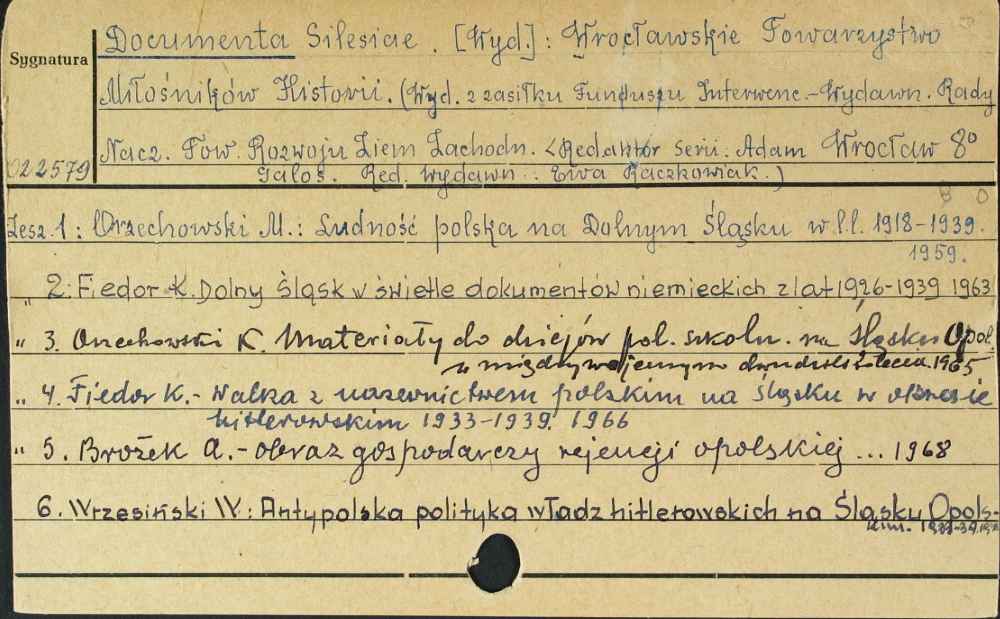 Documenta Silesiae. [Wyd.]: Wrocławskie Towarzystwo
Sygnatura
Miłośników Historii. (Wyd. z zasiłku Funduszu Interwenc.-Wydawn. Rady
022579
Nacz. Tow. Rozwoju Ziem Zachodn. <Redaktor serii. Adam Wrocław 8°
Galos. Red. Wydawn.: Ewa Raczkowiak.)
B O
Zesz. 1: Orzechowski M.: Ludność polska na Dolnym Śląsku w l.l. 1918-1939.
1959.
„ 2. Fiedor K. Dolny Śląsk w świetle dokumentów niemieckich z lat 1926-1939 1963
„ 3. Orzechowski K. Materiały do dziejów pol. szkoln. na Śląsku Opol.
w międzywojennym dwudziestoleciu. 1965
„ 4. Fiedor K. - Walka z nazewnictwem polskim na Śląsku w okresie
hitlerowskim 1933-1939. 1966
„ 5. Brożek A. - obraz gospodarczy rejencji opolskiej ... 1968
6. Wrzesiński W.: Antypolska polityka władz hitlerowskich na Śląsku Opols-
kim. 1933-39.